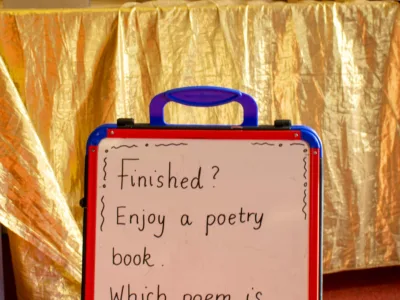 Finished?
Enjoy a poetry
book.
Which poem is